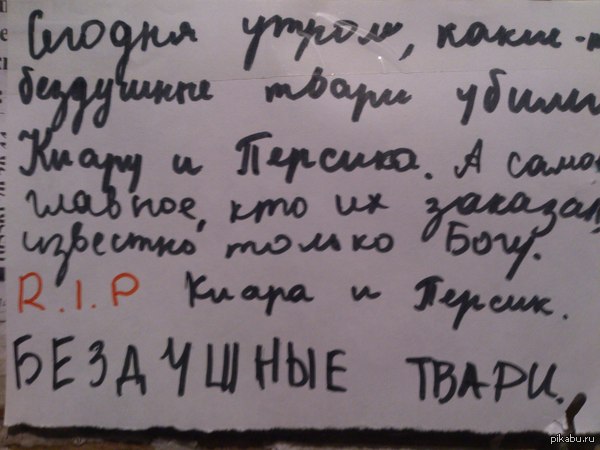 Сегодня утром, какие-т
бездушные твари убили
Киару и Персика. А само
главное, кто их заказал,
известно только Богу.
R.I.P Киара и Персик.
БЕЗДУШНЫЕ ТВАРИ.
pikabu.ru